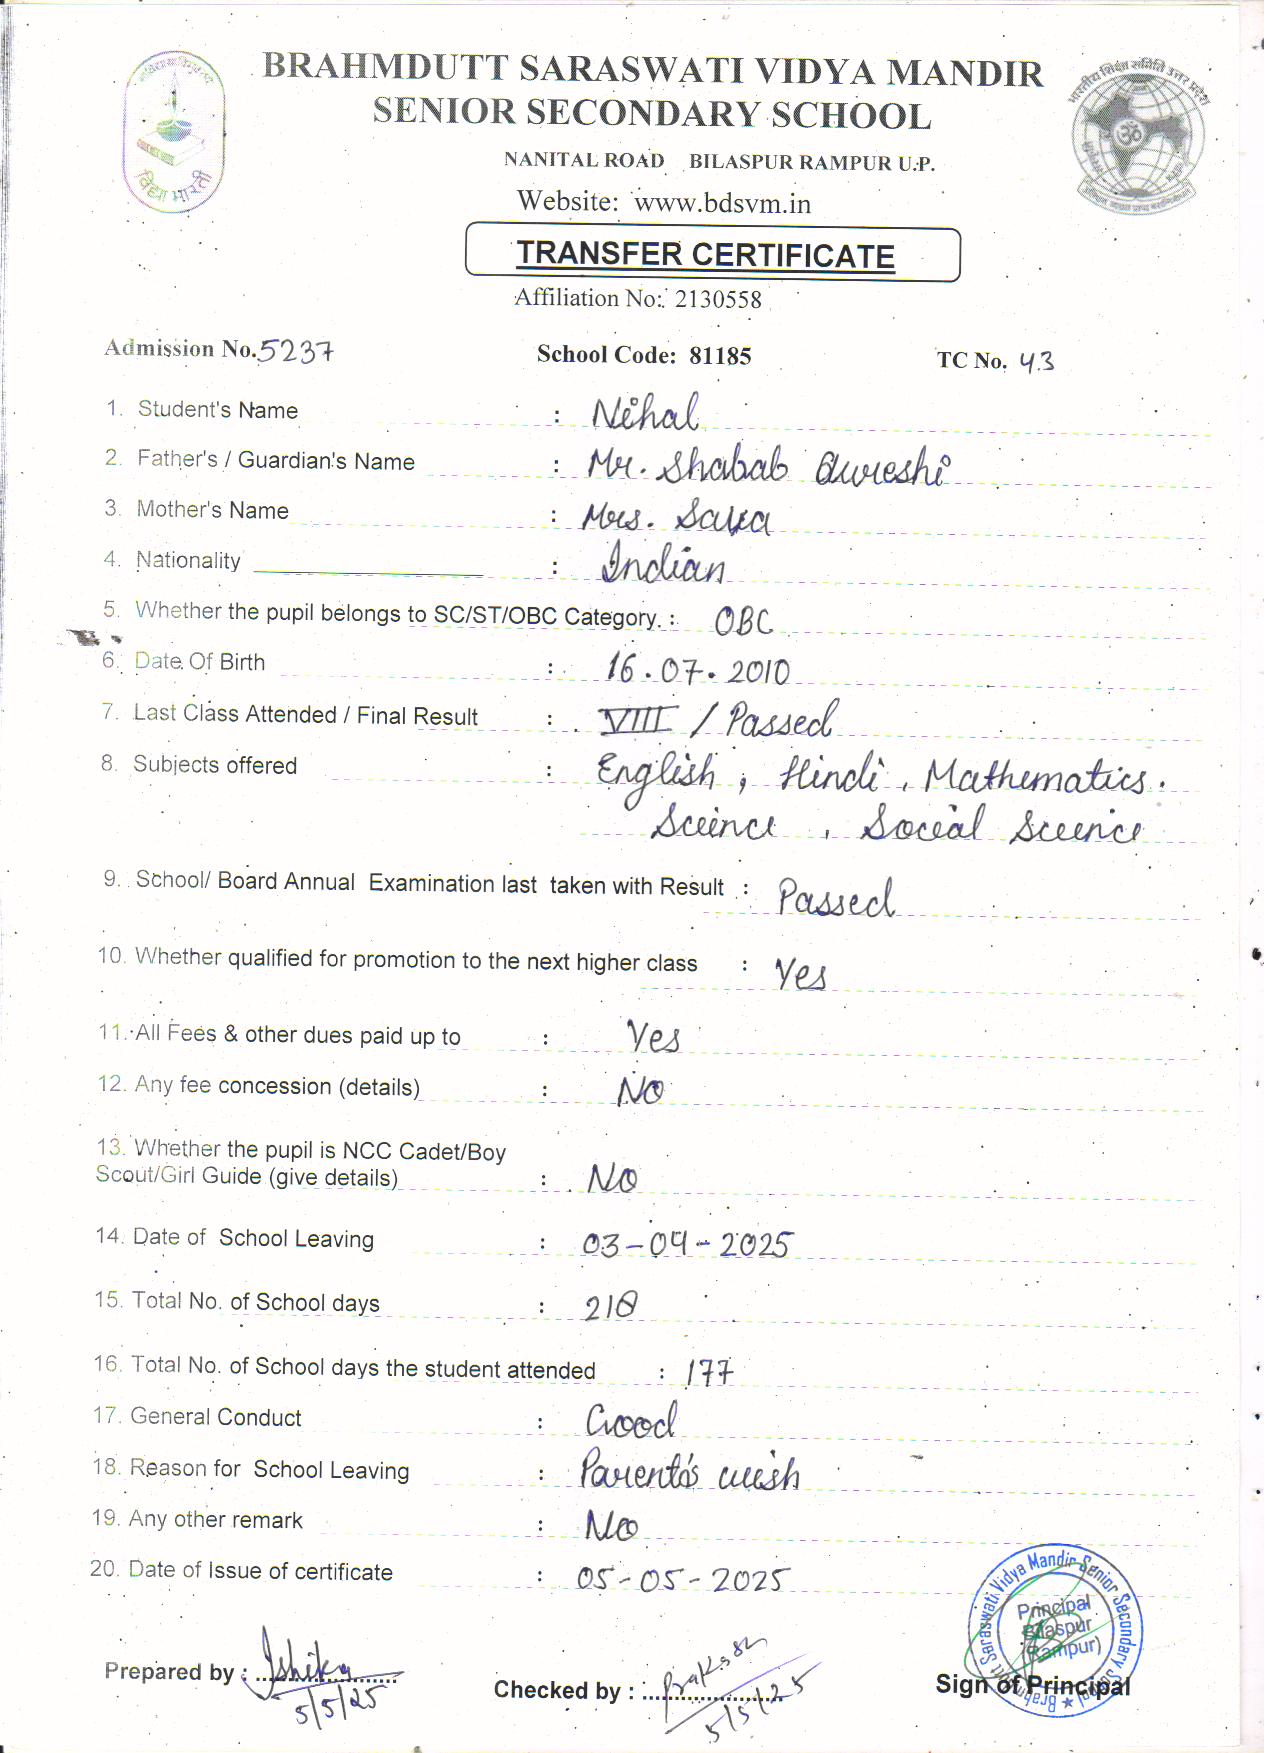 BRAHMDUTT SARASWATI VIDYA MANDIR
SENIOR SECONDARY SCHOOL
NANITAL ROAD BILASPUR RAMPUR U.P.
Website: www.bdsvm.in
विद्या भारती
भारतीय शिक्षा समिति उत्तर प्रदेश
ॐ
TRANSFER CERTIFICATE
Affiliation No: 2130558
Admission No. 5237 School Code: 81185 TC No. 43
1. Student's Name : Nihal
2. Father's / Guardian's Name : Mr. Shabab Qureshi
3. Mother's Name : Mrs. Saira
4. Nationality : Indian
5. Whether the pupil belongs to SC/ST/OBC Category. : OBC
6. Date Of Birth : 16.07.2010
7. Last Class Attended / Final Result : VIII / Passed
8. Subjects offered : English, Hindi, Mathematics.
Science, Social Science
9. School/ Board Annual Examination last taken with Result : Passed
10. Whether qualified for promotion to the next higher class : Yes
11. All Fees & other dues paid up to : Yes
12. Any fee concession (details) : No
13. Whether the pupil is NCC Cadet/Boy
Scout/Girl Guide (give details) : No
14. Date of School Leaving : 03-04-2025
15. Total No. of School days : 218
16. Total No. of School days the student attended : 177
17. General Conduct : Good
18. Reason for School Leaving : Parent's wish
19. Any other remark : No
20. Date of Issue of certificate : 05-05-2025
Brahmdutt Saraswati Vidya Mandir Senior Secondary School
Principal
Bilaspur
(Rampur)
Prepared by : Ishika Checked by : Sign of Principal
5/5/25 5/5/25